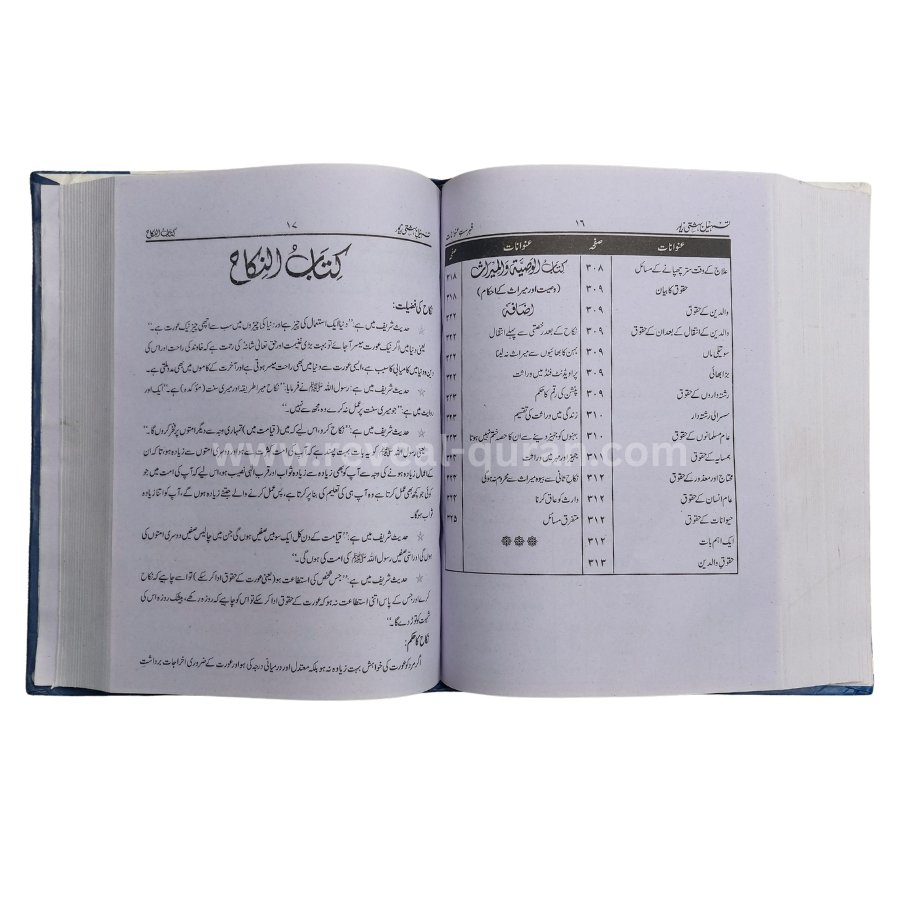 تسہیل بہشتی زیور ۱۶ فہرست عنوانات
عنوانات صفحہ عنوانات صفحہ
علاج کے وقت ستر چھپانے کے مسائل ۳۰۸
حقوق کا بیان ۳۰۹
والدین کے حقوق ۳۰۹
والدین کے انتقال کے بعد ان کے حقوق ۳۰۹
سوتیلی ماں ۳۰۹
بڑا بھائی ۳۰۹
رشتہ داروں کے حقوق ۳۰۹
سسرالی رشتہ دار ۳۱۰
عام مسلمانوں کے حقوق ۳۱۰
ہمسایہ کے حقوق ۳۱۱
محتاج اور معذور کے حقوق ۳۱۲
عام انسان کے حقوق ۳۱۲
حیوانات کے حقوق ۳۱۲
ایک اہم بات ۳۱۲
حقوق والدین ۳۱۳
کتاب الوصیۃ والمیراث ۳۱۸
(وصیت اور میراث کے احکام) ۳۱۸
اضافہ ۳۲۲
نکاح کے بعد رخصتی سے پہلے انتقال ۳۲۲
بہن کا بھائیوں سے میراث نہ لینا ۳۲۲
پراویڈنٹ فنڈ میں وراثت ۳۲۲
پنشن کی رقم کا حکم ۳۲۳
زندگی میں وراثت کی تقسیم ۳۲۳
بہنوں کو جہیز دینے سے ان کا حصہ ختم نہیں ہوتا
جہیز اور مہر میں وراثت
نکاح ثانی سے بیوہ میراث سے محروم نہ ہوگی
وارث کو عاق کرنا
متفرق مسائل ۳۲۵
تسہیل بہشتی زیور ۱۷ کتاب النکاح
کتاب النکاح
نکاح کی فضیلت:
حدیث شریف میں ہے: "دنیا ایک استعمال کی چیز ہے اور دنیا کی چیزوں میں سب سے اچھی چیز نیک عورت ہے۔"
یعنی دنیا میں اگر نیک عورت میسر آجائے تو بہت بڑی غنیمت اور حق تعالیٰ شانہ کی رحمت ہے کہ خاوند کی راحت اور اس کی
دین و دنیا میں کامیابی کا سبب ہے، ایسی عورت سے دنیا میں بھی راحت میسر ہوتی ہے اور آخرت کے کاموں میں بھی مدد ملتی ہے۔
حدیث شریف میں ہے: رسول اللہ ﷺ نے فرمایا: "نکاح میرا طریقہ اور میری سنت (مؤکدہ) ہے۔" ایک اور
روایت میں ہے: "جو میری سنت پر عمل نہ کرے وہ مجھ سے نہیں۔"
حدیث شریف میں ہے: "نکاح کرو، اس لیے کہ میں (قیامت میں) تمہاری وجہ سے دیگر امتوں پر فخر کروں گا۔"
کے اعمال زیادہ ہونے کی وجہ سے آپ کو بھی زیادہ سے زیادہ ثواب اور قرب الٰہی نصیب ہو، اس لیے کہ آپ کی امت میں جو
کوئی جو کچھ بھی عمل کرتا ہے وہ آپ ہی کی تعلیم کی بنا پر کرتا ہے، پس عمل کرنے والے جتنے زیادہ ہوں گے، آپ کو اتنا زیادہ
ثواب ہوگا۔
حدیث شریف میں ہے: "قیامت کے دن کل ایک سو بیس صفیں ہوں گی جن میں چالیس صفیں دوسری امتوں کی
ہوں گی اور اسی صفیں رسول اللہ ﷺ کی امت کی ہوں گی۔"
حدیث شریف میں ہے: "جس شخص کی استطاعت ہو (یعنی عورت کے حقوق ادا کر سکے) تو اسے چاہیے کہ نکاح
کرے اور جس کے پاس اتنی استطاعت نہ ہو کہ عورت کے حقوق ادا کر سکے تو اس کو چاہیے کہ روزہ رکھے، بیشک روزہ اس کی
شہوت کو توڑ دے گا۔"
نکاح کا حکم:
اگر مرد کو عورت کی خواہش بہت زیادہ نہ ہو بلکہ معتدل اور درمیانی درجہ کی ہو اور عورت کے ضروری اخراجات برداشت
www.reyaal-quran.com